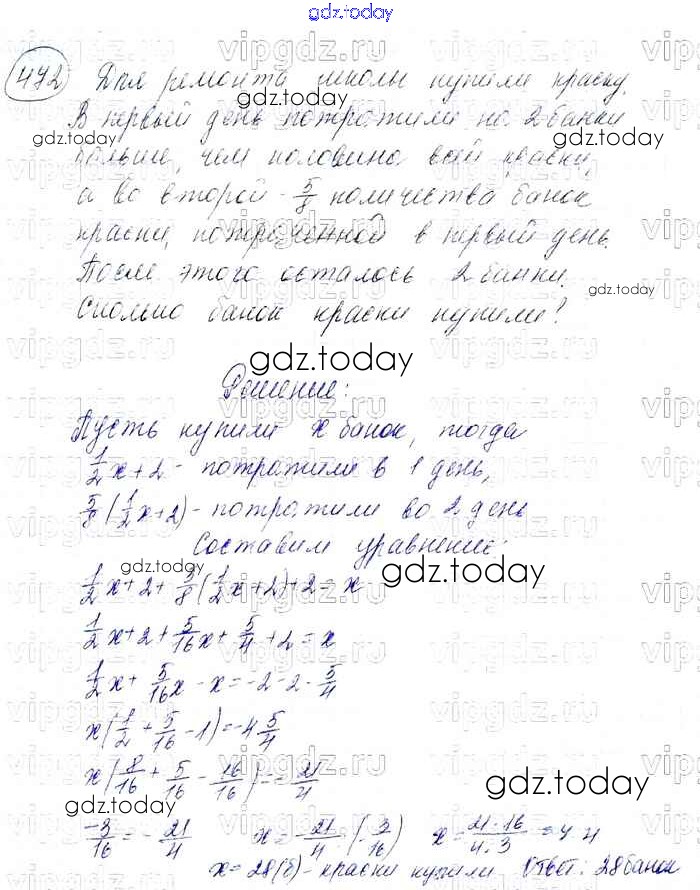 gdz.today
472 Для ремонта школы купили краску.
В первый день потратили на 2 банки
больше, чем половина всей краски,
а во второй - 5/8 количества банок
краски, потраченной в первый день.
После этого осталось 2 банки.
Сколько банок краски купили?
Решение:
Пусть купили x банок, тогда
1/2 x + 2 - потратили в 1 день,
5/8 (1/2 x + 2) - потратили во 2 день
Составим уравнение:
1/2 x + 2 + 5/8 (1/2 x + 2) + 2 = x
1/2 x + 2 + 5/16 x + 5/4 + 2 = x
1/2 x + 5/16 x - x = -2 - 2 - 5/4
x (1/2 + 5/16 - 1) = -4 5/4
x (8/16 + 5/16 - 16/16) = - 21/4
-3/16 = - 21/4 x = - 21/4 : (- 3/16) x = 21·16/4·3 = 7·4
x = 28(б) - краски купили Ответ: 28 банок